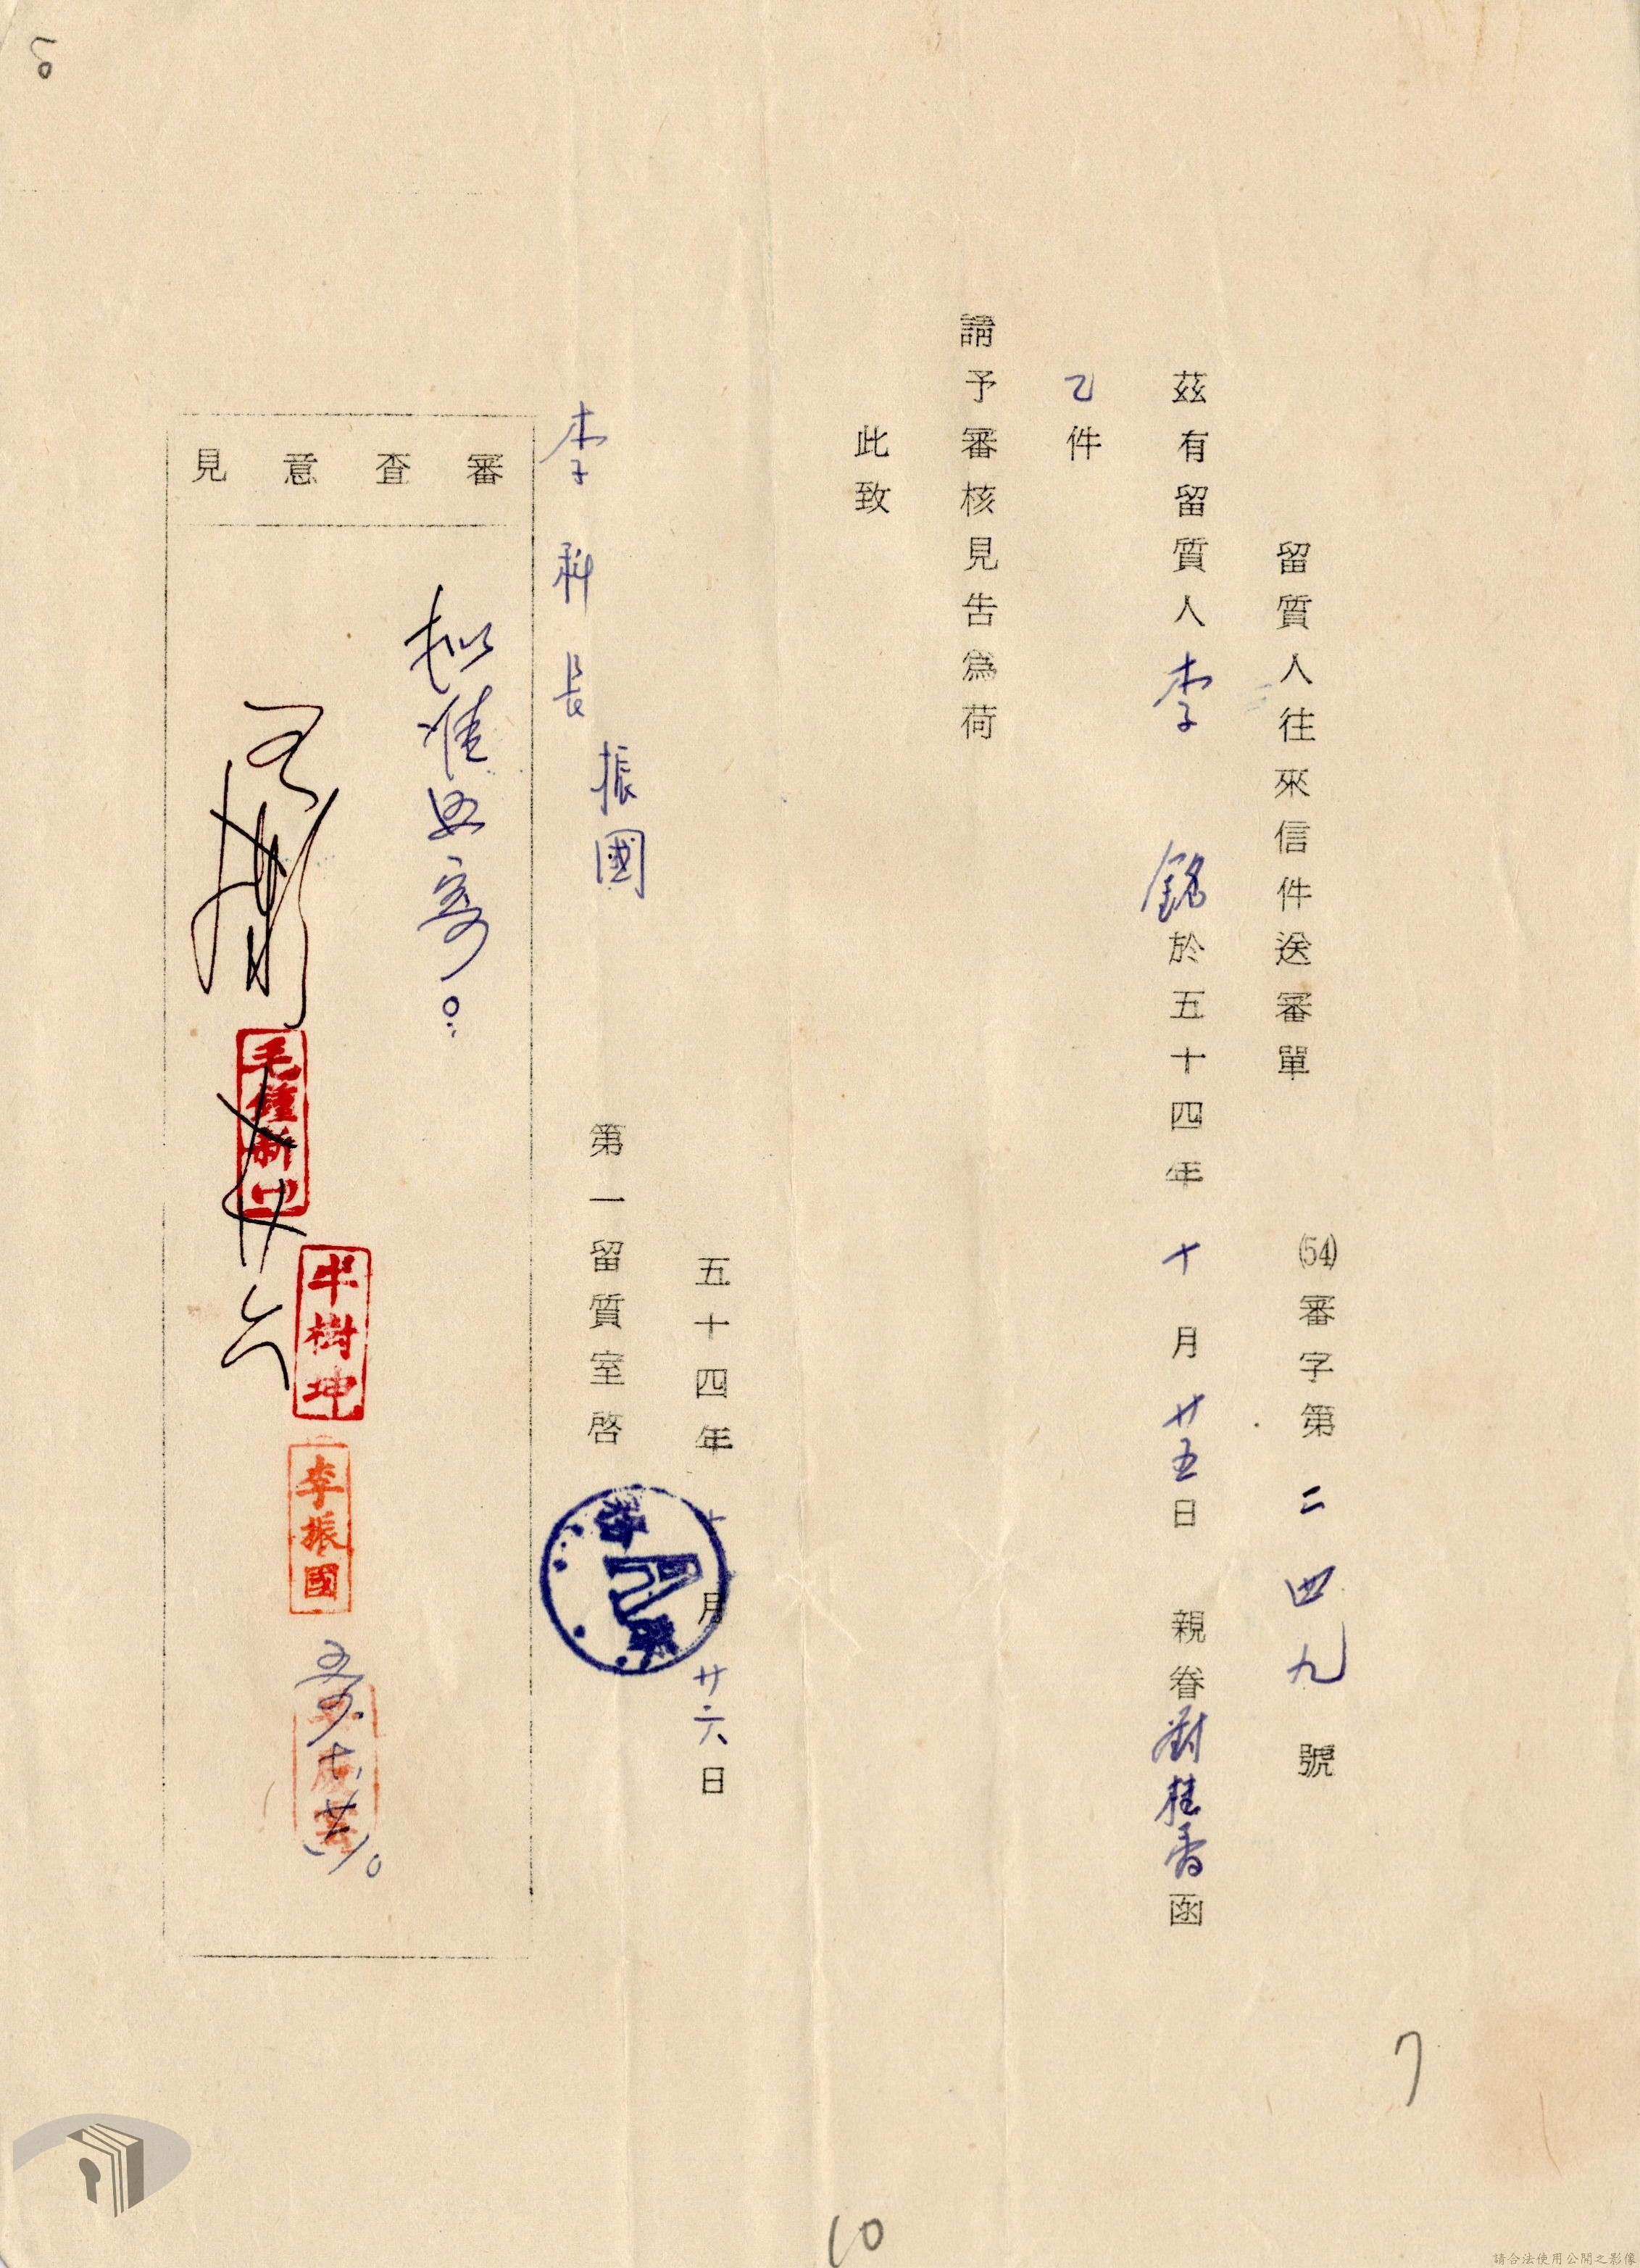 留質人往來信件送審單
(54)審字第二四九號
茲有留質人李 銘於五十四年十月廿五日 親眷劉桂香函
乙件
請予審核見告為荷
此致
李科長振國
第一留質室啓
五十四年十月廿六日
審查意見
擬准照寄。
毛鍾新
牛樹坤
李振國
7
10
請合法使用公開之影像